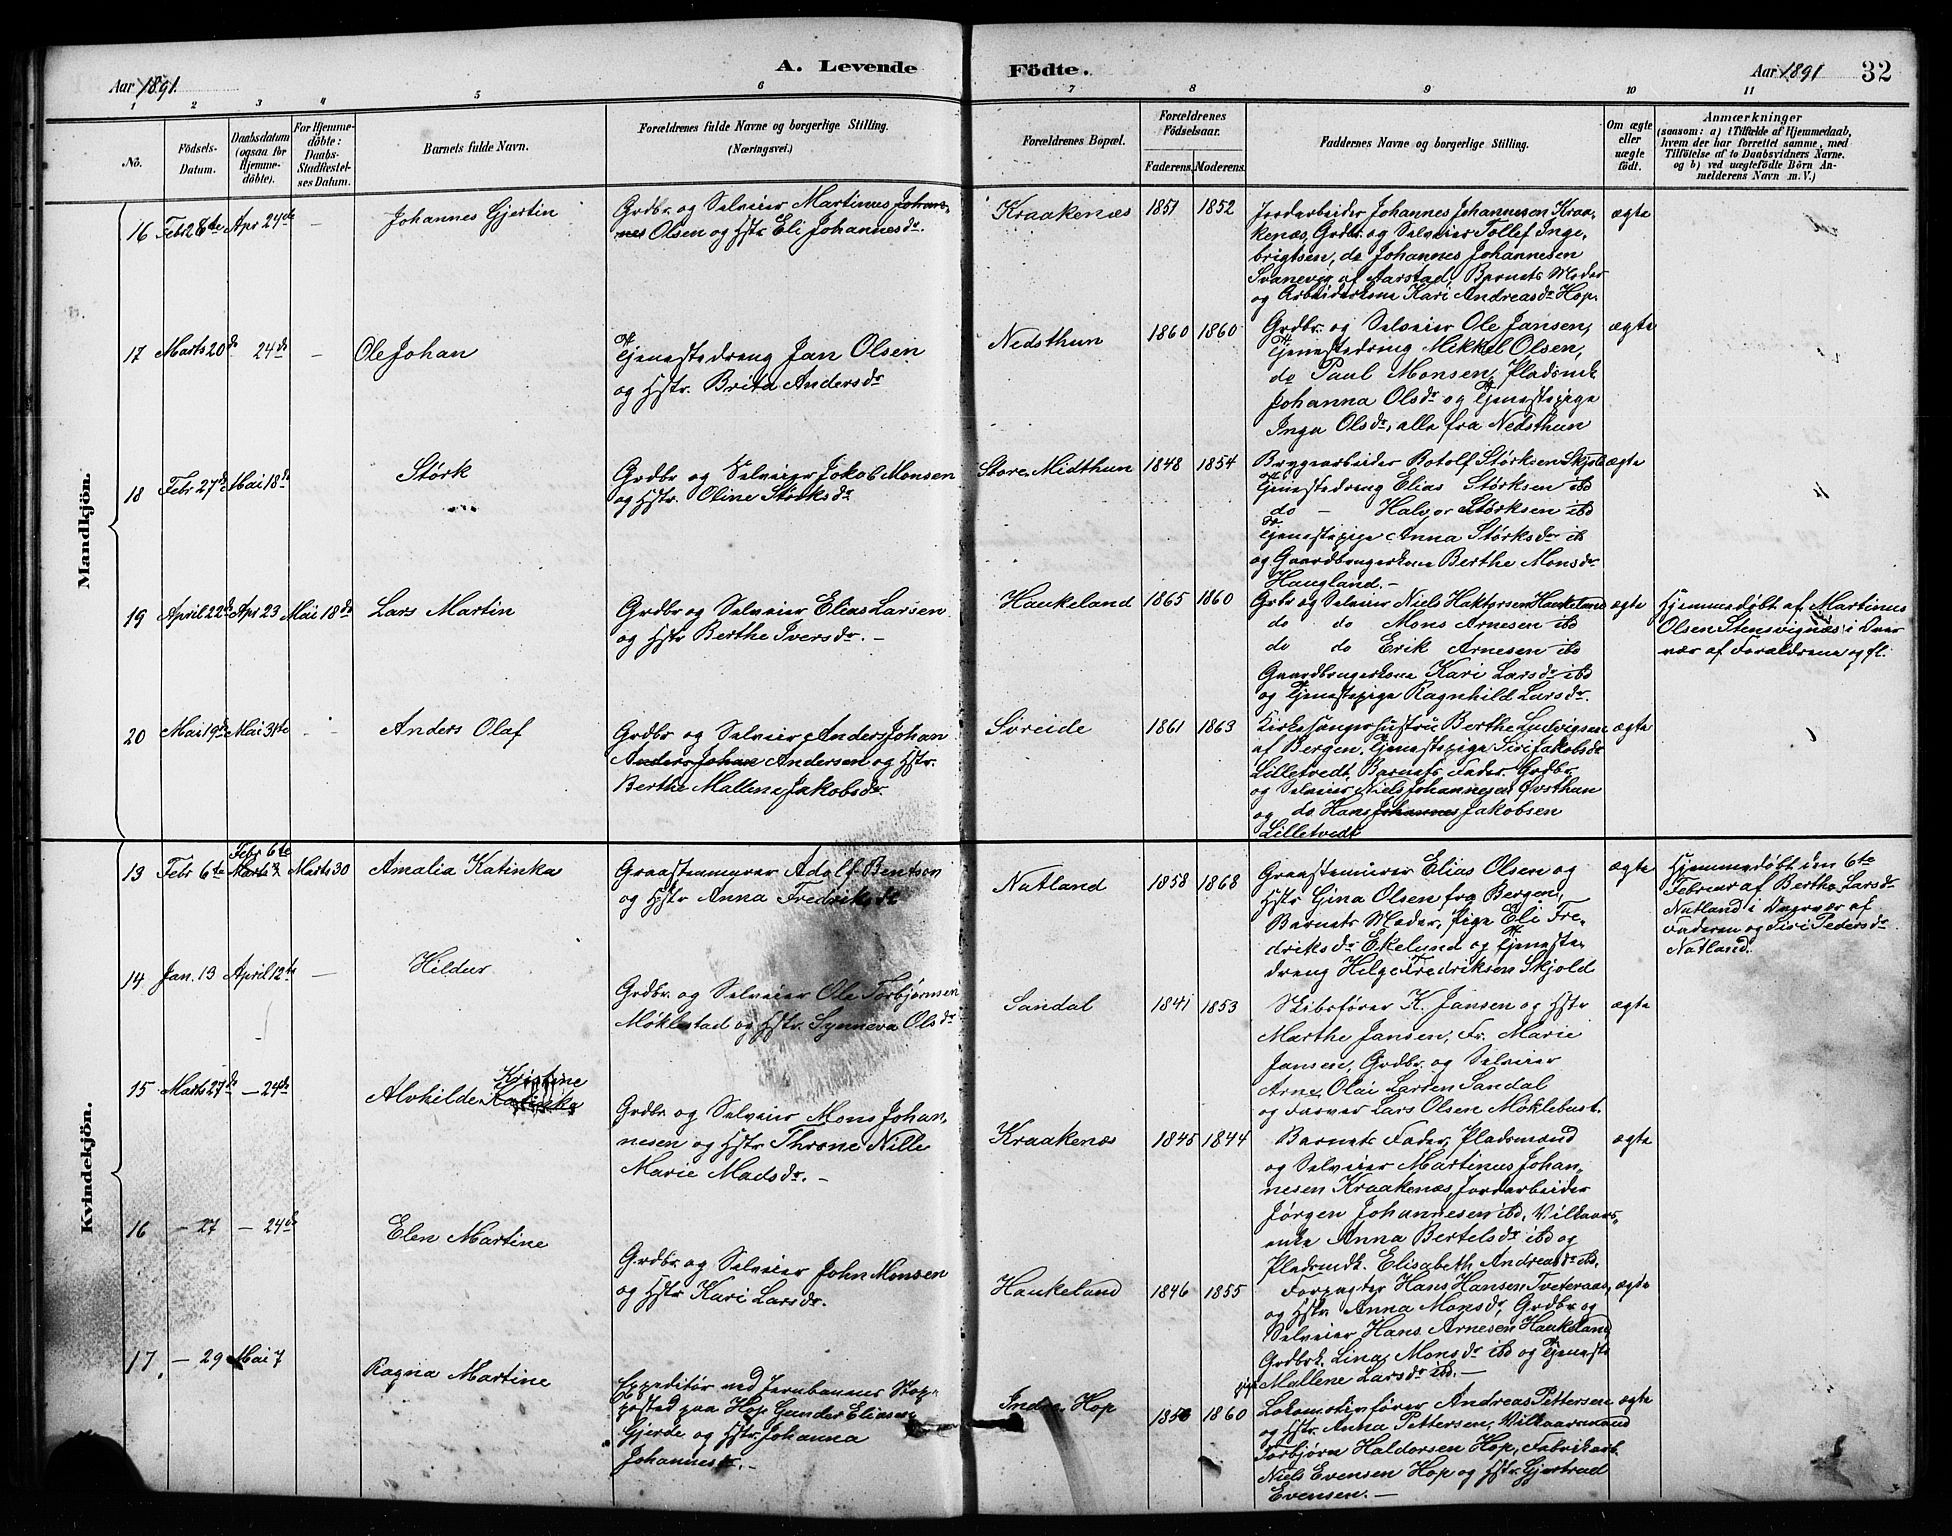 A. Levende Födte.
Aar 1891.
Aar 1891
32
1 2 3 4 5 6 7 8 9 10 11
No.
Födsels-Datum.
Daabsdatum (ogsaa for Hjemme-döbte).
For Hjemme-döbte: Daabs-Stadfæstel-ses Datum.
Barnets fulde Navn.
Forældrenes fulde Navne og borgerlige Stilling.
(Næringsvei.)
Forældrenes Bopæl.
Forældrenes Födselsaar.
Faderens. Moderens.
Faddernes Navne og borgerlige Stilling.
Om ægte eller uægte födt.
Anmærkninger
(saasom: a) i Tilfælde af Hjemmedaab,
hvem der har forrettet samme, med
Tilföielse af to Daabsvidners Navne.
og b) ved uægtefödte Börn An-
melderens Navn m. V.)
Mandkjön.
16 Febr 28de Apr 24de – Johannes Gjertin
Grdbr. og Selveier Martinus Johan-
nes Olsen og Hstr. Eli Johannesdr.
Kraakenæs 1851 1852
Jordarbeider Johannes Johannesen Kraa-
kenæs, Grdbr. og Selveier Tollef Inge-
brigtsen, do Johannes Johannesen
Svanevig af Aarstad, Barnets Moder
og Arbeiderkone Kari Andreasdr Hop.
ægte
17 Marts 20de 24de – Ole Johan
Tjenestedreng Jan Olsen
og Hstr. Brita Andersdr
Nedsthun 1860 1860
Grdbr. og Selveier Ole Jansen,
Tjenestedreng Mikkel Olsen,
do Paul Monsen, Pladsmk
Johanna Olsdr og Tjenestepige
Inga Olsdr, alle fra Nedsthun
ægte
18 Febr 27de Mai 18de Størk
Grdbr og Selveier Jakob Monsen
og Hstr. Oline Størksdr
Store Midthun 1848 1854
Brygearbeider Botolf Størksen Skjold
Tjenestedreng Elias Størksen ibd
do – Halvor Størksen ibd
Tjenestepige Anna Størksdr ib
og Gaardbrugerkone Berthe Monsdr
Haugland. –
ægte
19 April 22de Apr 23 Mai 18de Lars Martin
Grdbr og Selveier Elias Larsen
og Hstr Berthe Iversdr. –
Haukeland 1865 1860
Grbr og Selveier Niels Haktorsen Haukeland
do do Mons Arnesen ibd
do do Erik Arnesen ibd
Gaardbrugerkone Kari Larsdr ibd
og Tjenestepige Ragnhild Larsdr.
ægte
Hjemmedøbt af Martinus
Olsen Stensvignæs i Over
vær af Forældrene og fl.
20 Mai 19de Mai 31te – Anders Olaf
Grdbr og Selveier Anders Johan
Anders Johan Andersen og Hstr.
Berthe Mallene Jakobsdr.
Søreide 1861 1863
Kirkesangerhustru Berthe Ludvigsen
af Bergen, Tjenestepige Siri Jakobsdr
Lilletvedt, Barnets Fader. Grdbr.
og Selveier Niels Johannesen Øvsthun
og do Hans Johannes Jakobsen
Lilletvedt
ægte
Kvindekjön.
13 Febr 6te Febr 6te Marts Marts 30 Amalia Katinka
Graastensmurer Adolf Bentson
og Hstr Anna Fredriksdr
Natland 1858 1868
Graastensmurer Elias Olsen og
Hstr Gina Olsen fra Bergen,
Barnets Moder, Pige Eli Fre-
driksdr Ekelund og Tjeneste
dreng Helge Fredriksen Skjold
ægte
Hjemmedøbt den 6te
Februar af Berthe Larsdr
Natland i Overvær af
Faderen og Siri Pedersdr
Natland.
14 Jan. 13 April 12te – Hildur
Grdbr. og Selveier Ole Torbjørnsen
Møklestad og Hstr. Synneva Olsdr
Sandal 1841 1853
Skibsfører K. Jansen og Hstr
Marthe Jansen, Fr. Marie
Jansen, Grdbr. og Selveier
Arne Olai Larsen Sandal
og Farver Lars Olsen Møklebust.
ægte
15 Marts 27de – 24de Alvhilde Kristine Katinka
Grdbr og Selveier Mons Johan-
nesen og Hstr Throne Nille
Marie Madsdr. –
Kraakenæs 1845 1844
Barnets Fader, Pladsmand
og Selveier Martinus Johan-
nesen Kraakenæs, Jordarbeider
Jørgen Johannesen ibd, Vilkaars-
enke Anna Bertelsdr ibd og
Pladsmdk. Elisabeth Andreasdr ib.
ægte
16 – 27 – 24de Elen Martine
Grdbr. og Selveier John Monsen
og Hstr Kari Larsdr.
Haukeland 1846 1855
Forpagter Hans Hansen Tveteraas,
og Hstr. Anna Monsdr, Grdbr. og
Selveier Hans Arnesen Haukeland
Grdbrk. Lina Monsdr ibd og Tjeneste
pige Mallene Larsdr ibd. –
ægte
17. – 29 Mai 7 Ragna Martine
Expeditør ved Jernbanens Stop-
pested paa Hop Gunder Eliasen
Gjerde og Hstr. Johanna
Johannesdr. –
Indre Hop 1856 1860
Lokomotivfører Andreas Pettersen
og Hstr. Anna Pettersen, Vilkaarsmand
Torbjørn Haldorsen Hop, Fabrikarb.
Niels Evensen Hop og Hstr. Gjertrud
Evensen. –
ægte